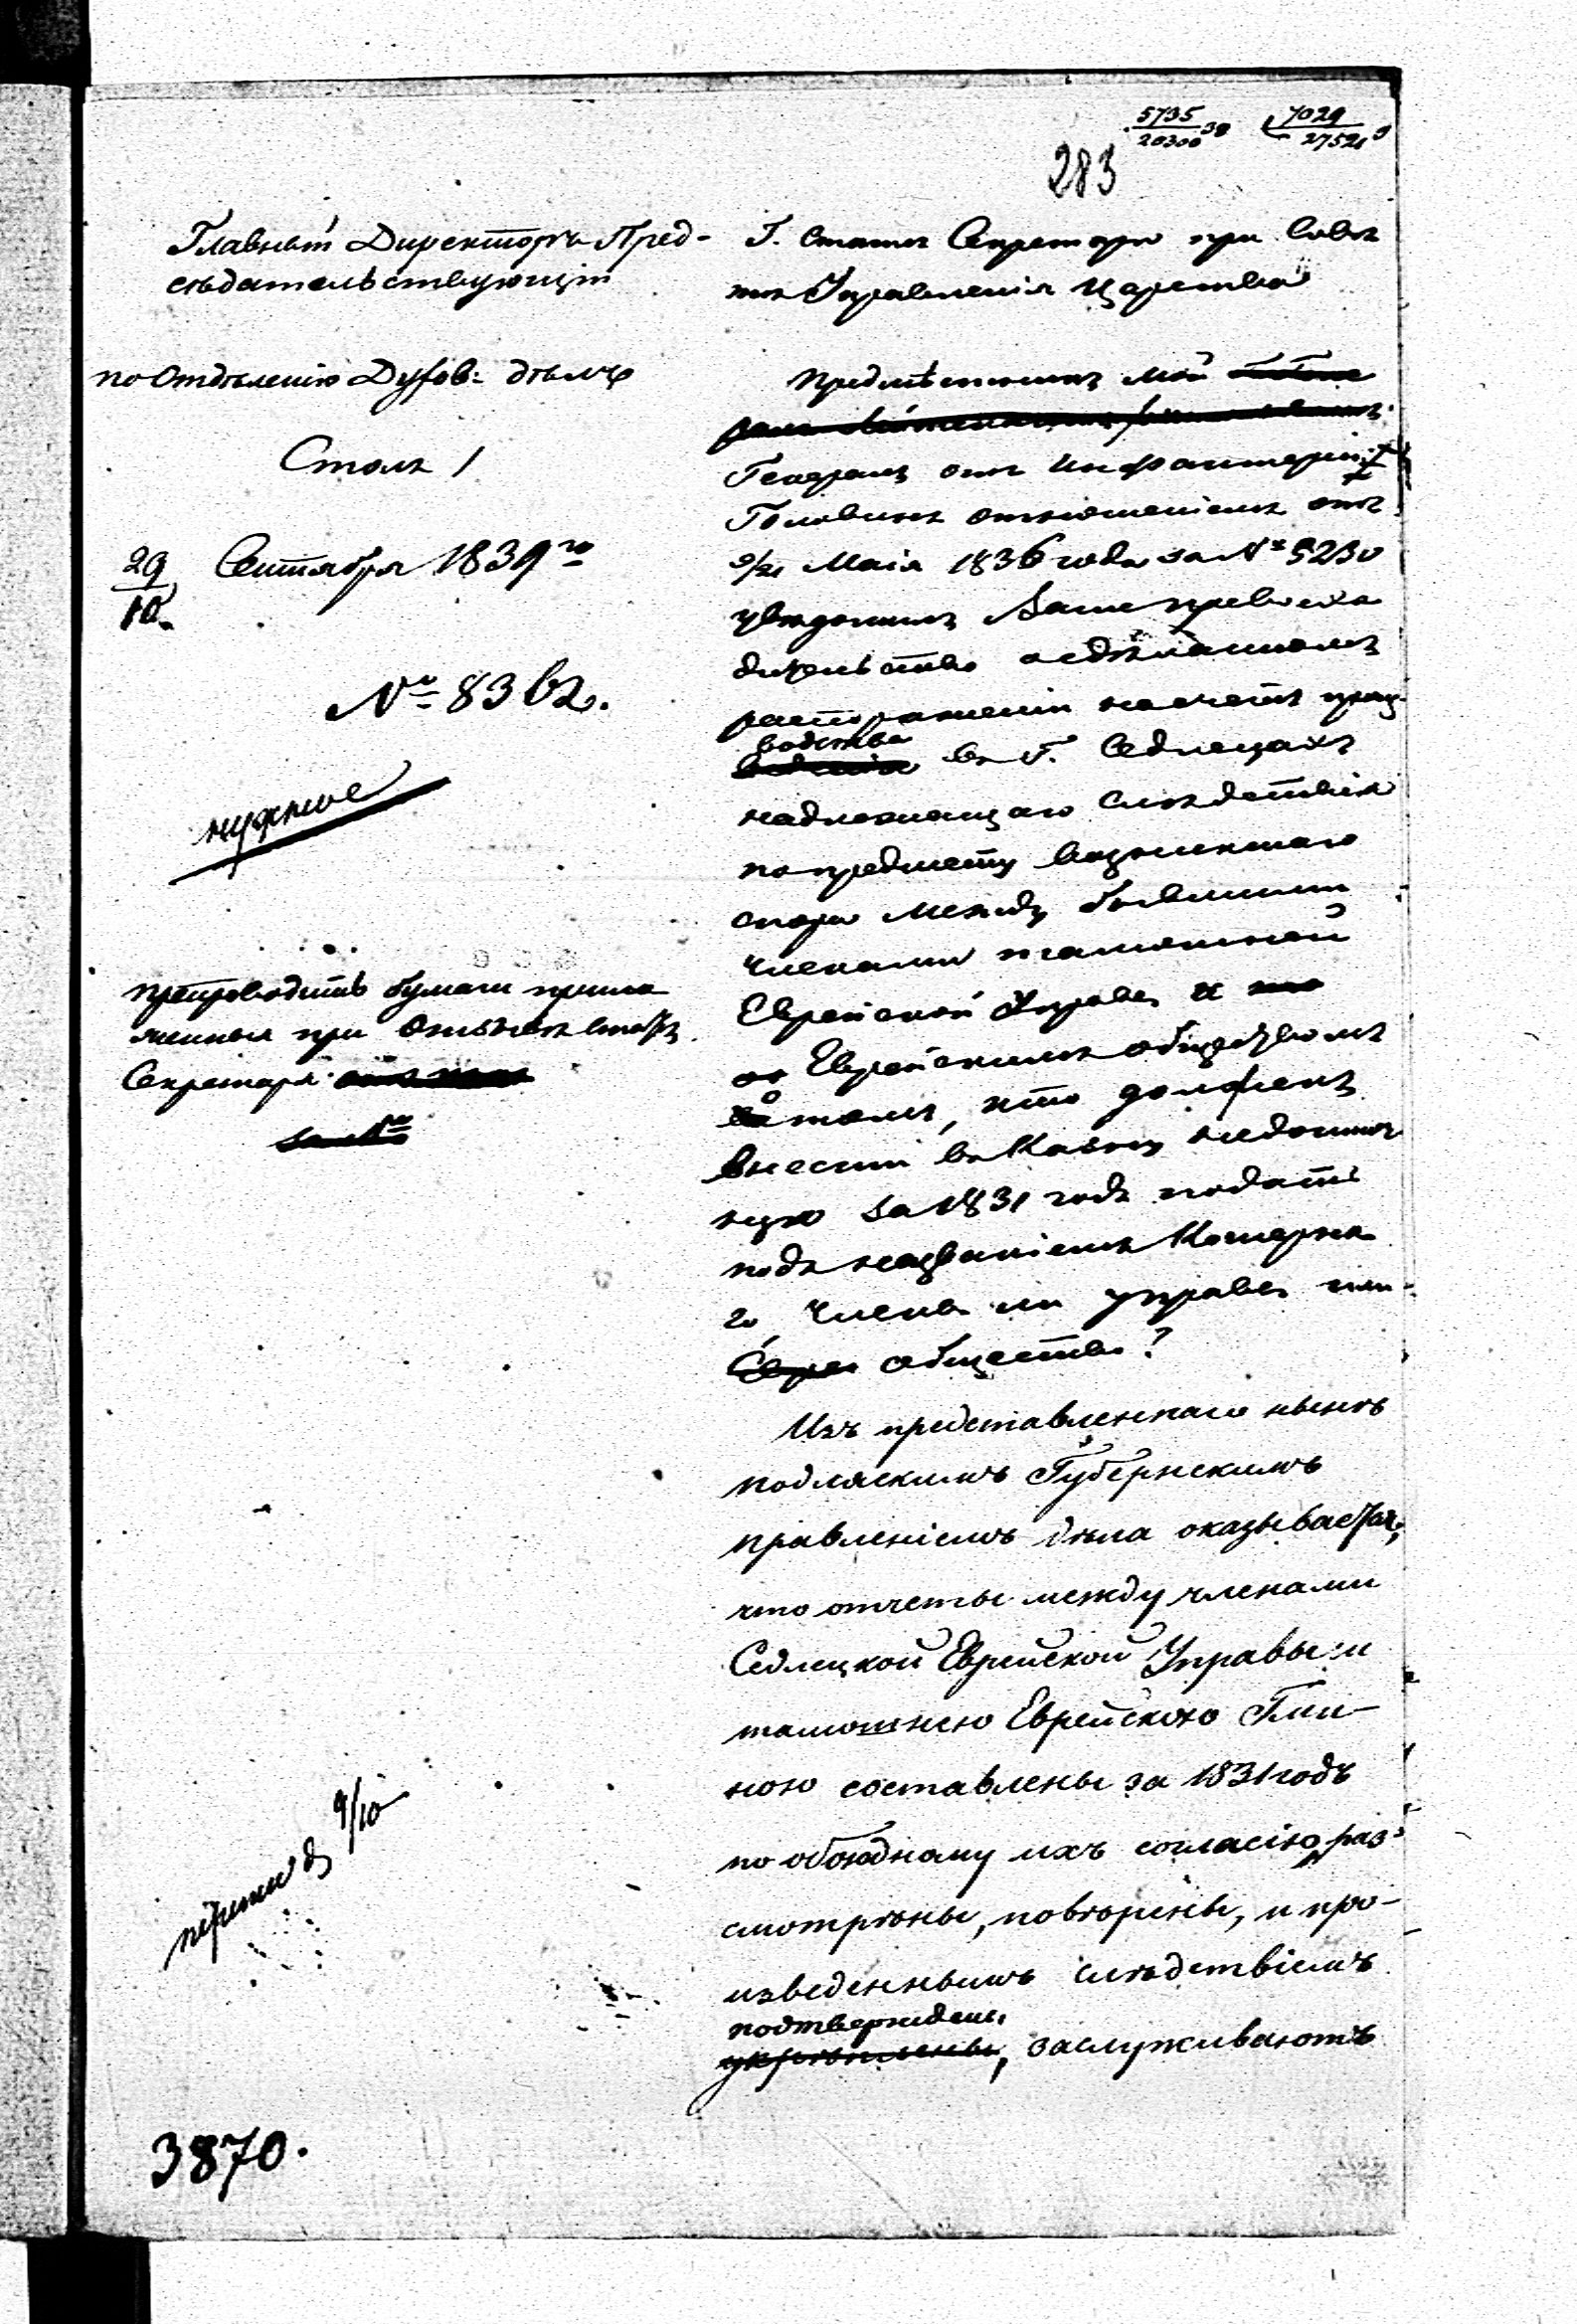 5735
20300 38
7029
27521 9
283
Главный Директоръ Пред-
сѣдательствующій
по Отдѣленію Духов: дѣлъ
Столъ 1
29
10
Сентября 1839 го
№ 8362.
нужное
препроводить бумаги прило
женныя при
Секретаря
9/10
3870.
Г. Статсъ Секретарю при Совѣ
тѣ Управленія Царства
Предмѣстникъ мой
Генералъ отъ Инфантеріи
Головинъ отношеніемъ отъ
9/21 Маія 1836 года за № 5230
увѣдомилъ Ваше превосхо
дительство о сдѣланномъ
распоряженіи на счетъ произ-
водства
въ Г. Седлецахъ
надлежащаго слѣдствія
по предмету возникшаго
спора между бывшими
членами тамошней
Еврейской Управы и
Еврейскимъ обществомъ
о томъ, кто долженъ
внести въ Казну недоимоч
ную за 1831 годъ подать
подъ названіемъ Кошерна
го члены ли управы или
общество?
Изъ представленнаго нынѣ
Подляскимъ Губернскимъ
правленіемъ дѣла оказывается,
что отчеты между членами
Седлецкой Еврейской Управы и
тамошнею Еврейскою Гми-
ною составлены за 1831 годъ
по обоюдному ихъ согласію, раз-
смотрѣны, повѣрены, и про-
изведеннымъ слѣдствіемъ
подтверждены
укрѣплены, заслуживаютъ